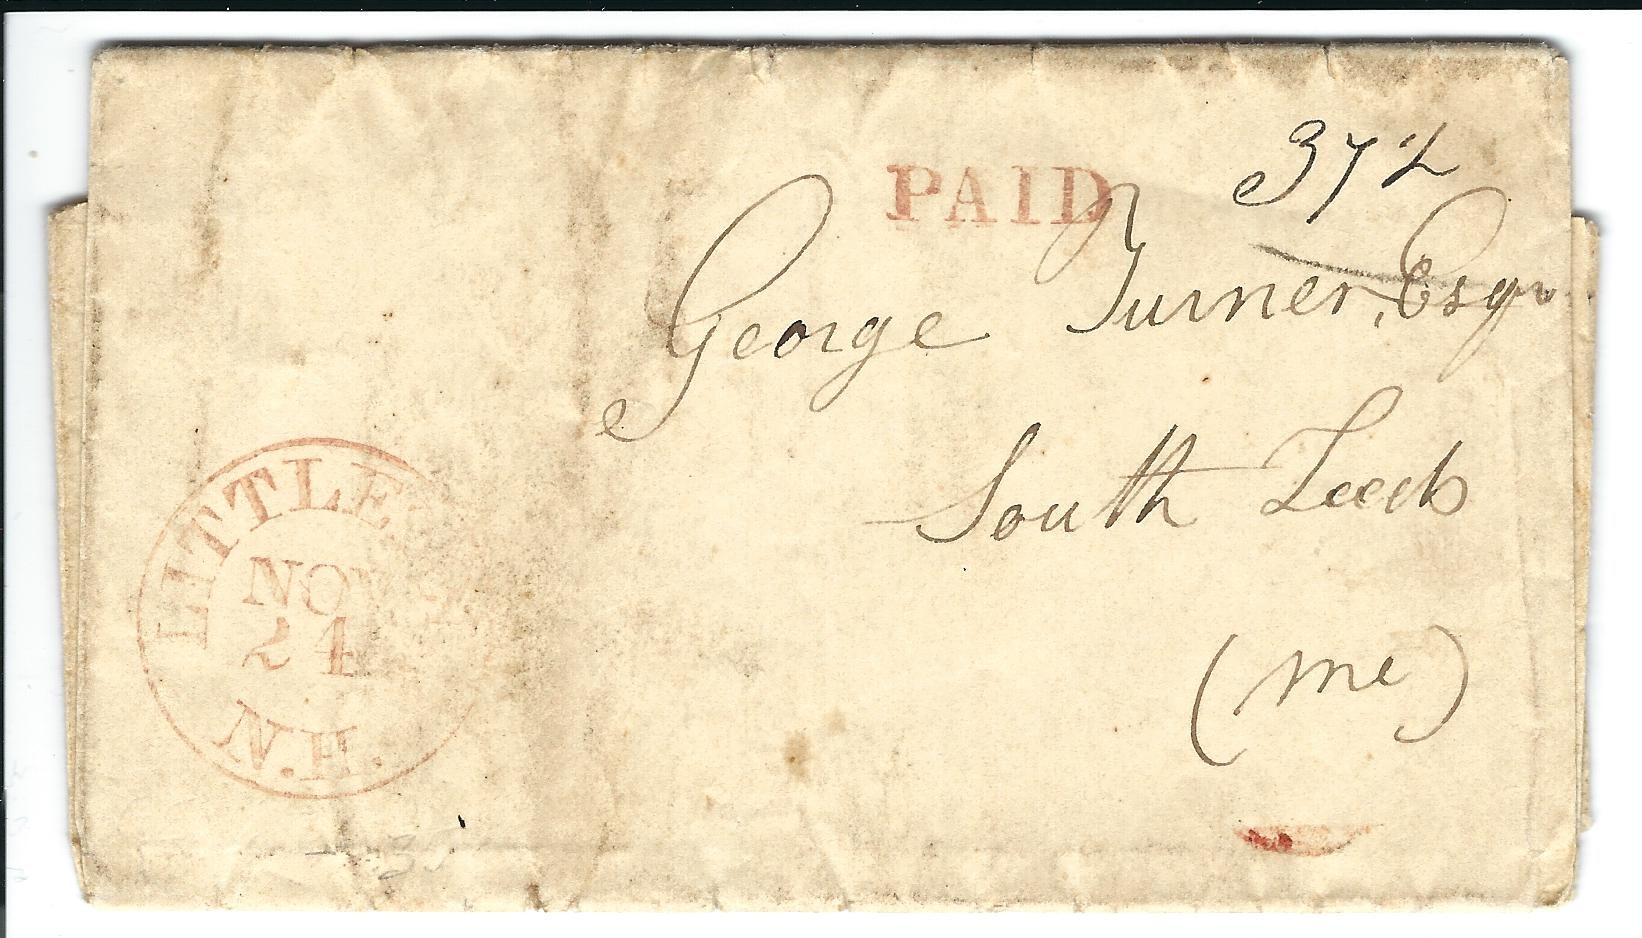 PAID
37½
George Turner, Esqr
South Leeds
(Me)
LITTLE
NOV
24
N.H.
35